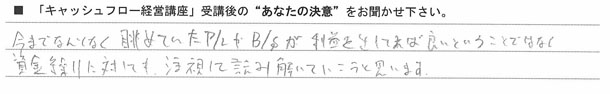 ■ 「キャッシュフロー経営講座」受講後の“あなたの決意”をお聞かせ下さい。
今までなんとなく眺めていたP/LやB/Sが利益を出してれば良いということではなく
資金繰りに対しても、注視して読み解いていこうと思います。